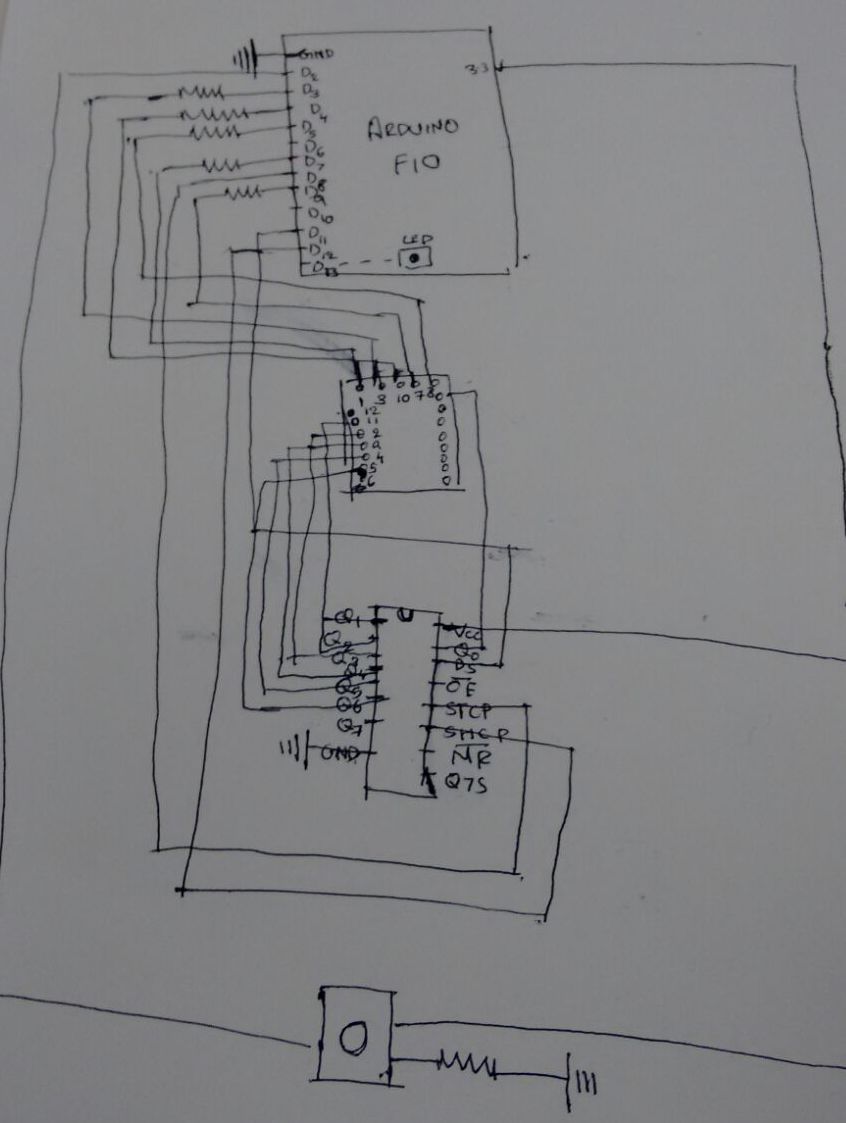 GND
D2
D3
D4
D5
D6
D7
D8
D9
D10
D11
D12
D13
3.3
ARDUINO
FIO
LED
1 3 10 7 8
12
11
2
9
4
5
6
Q1
Q2
Q3
Q4
Q5
Q6
Q7
GND
VCC
Q0
DS
OE
STCP
SHCP
MR
Q7S